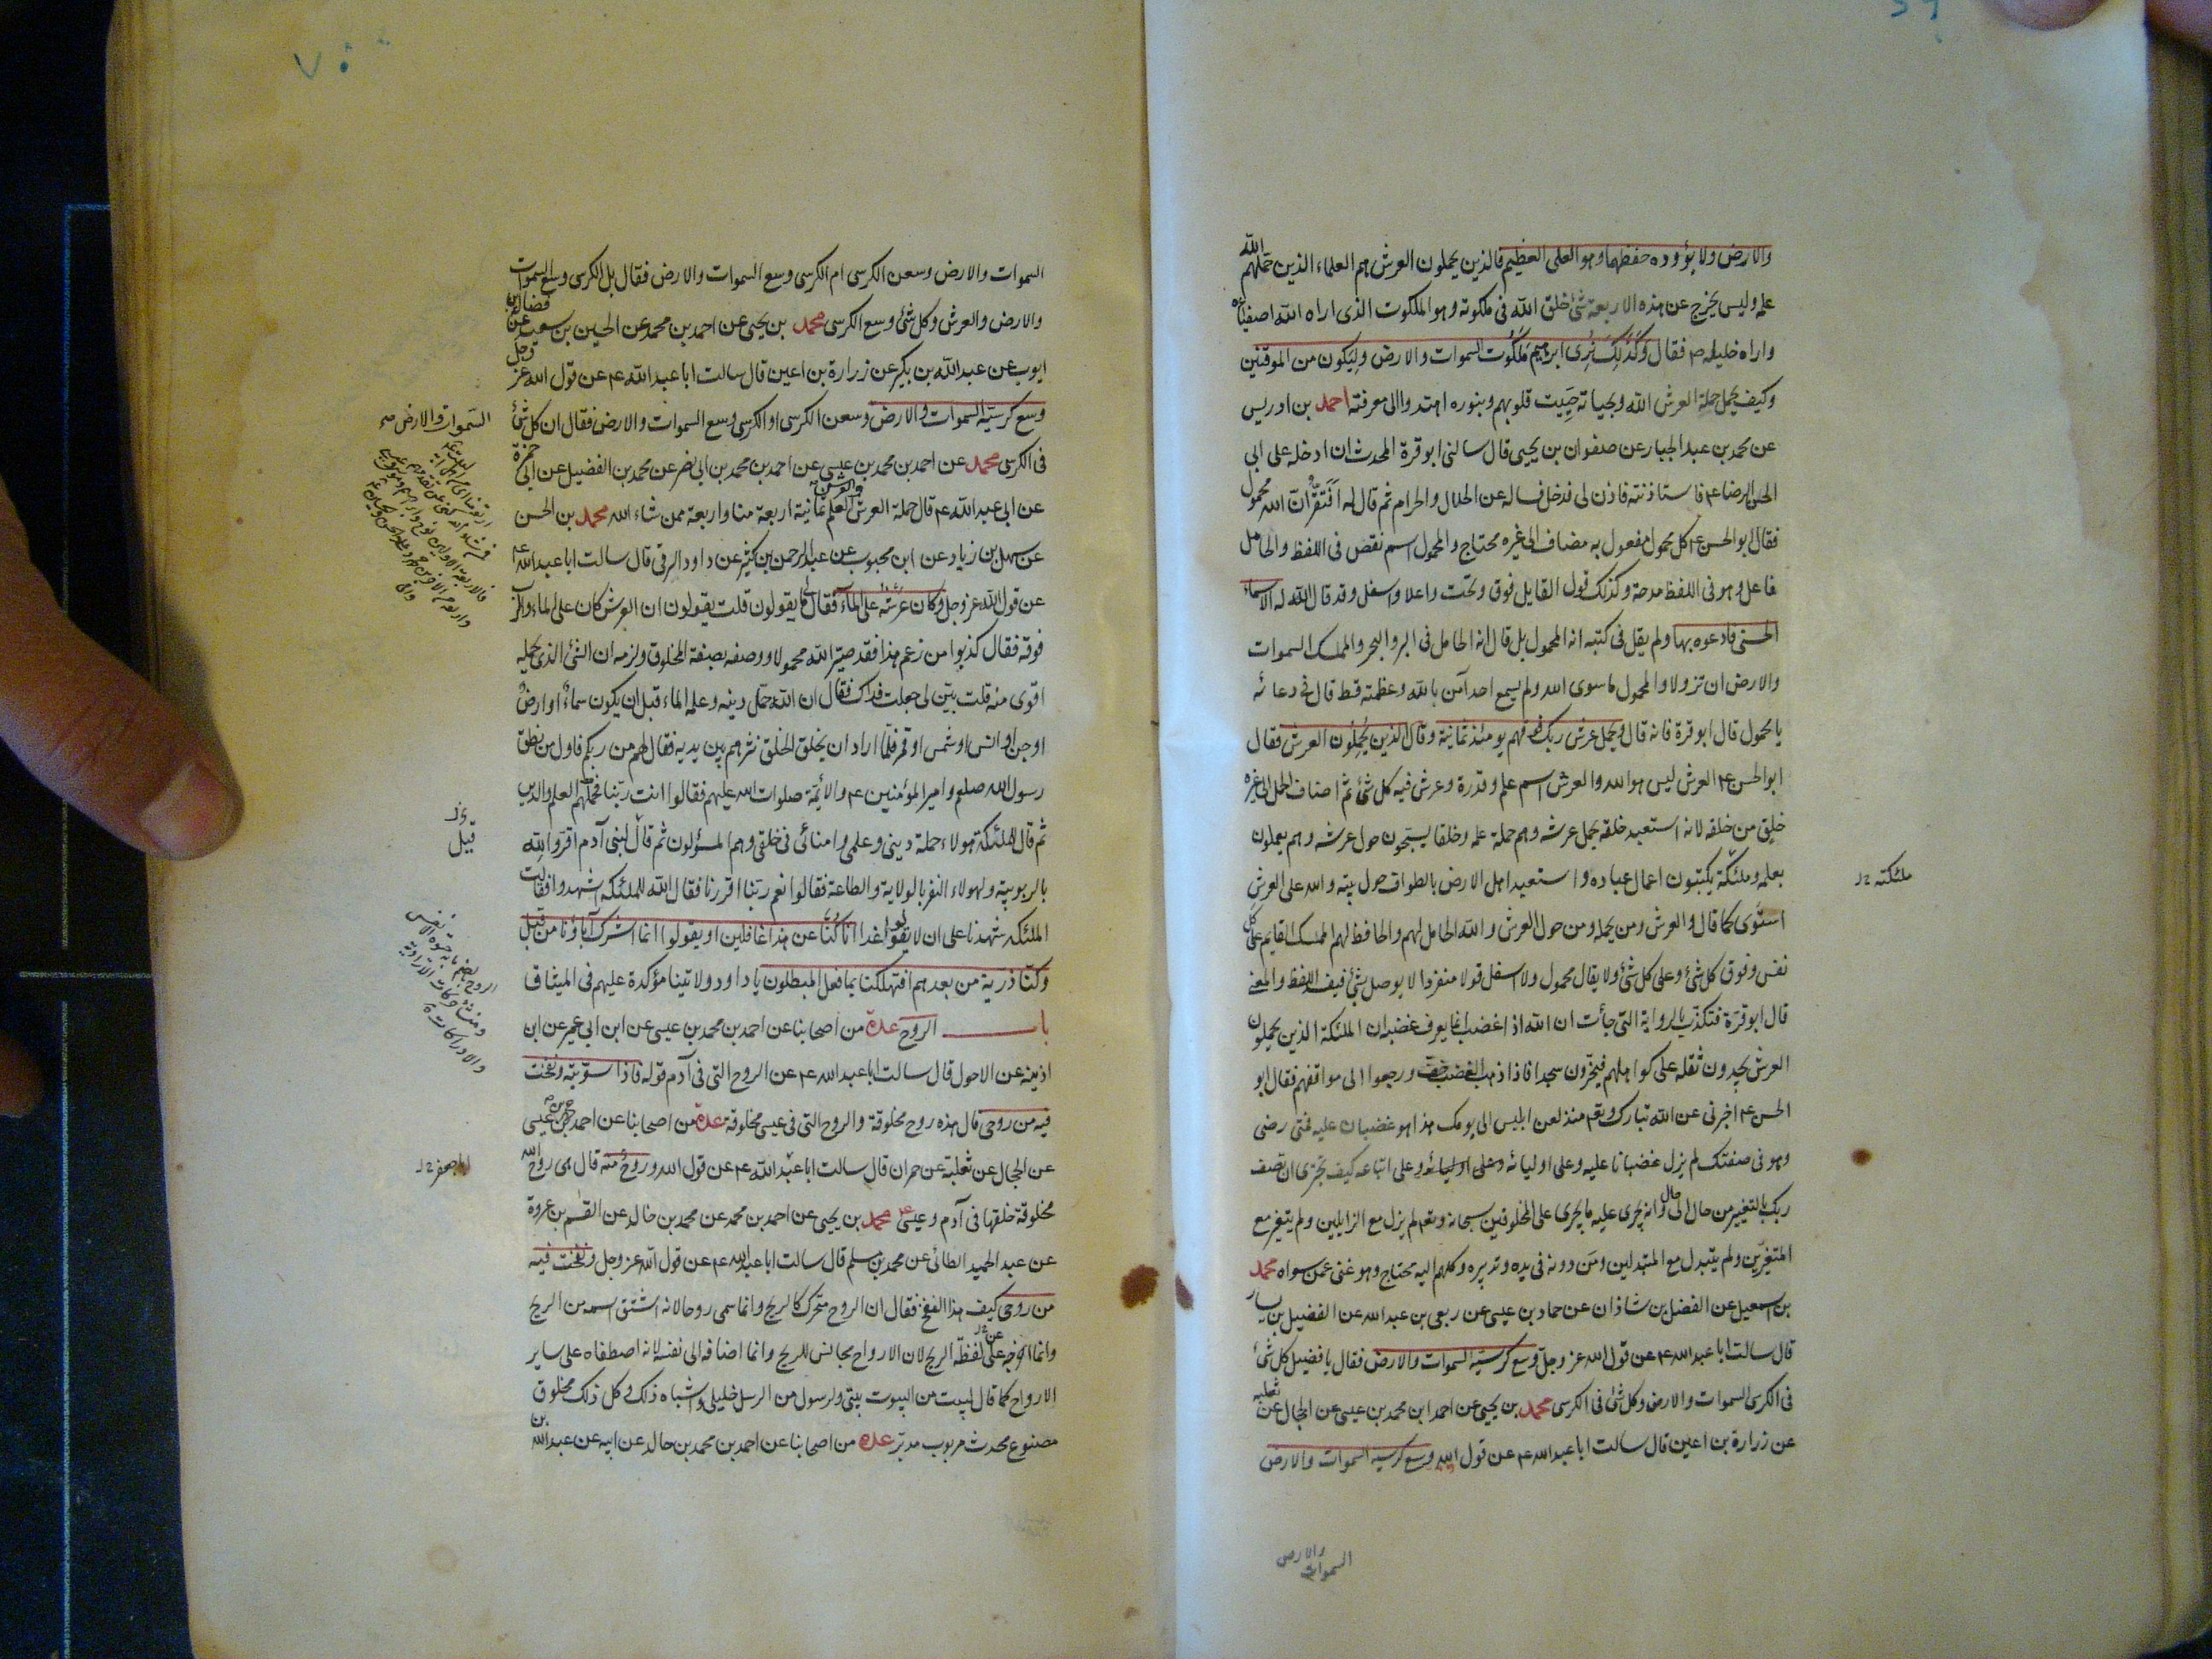 والارض ولا يؤوده حفظهما وهو العلى العظيم فالذين يحملون العرش هم العلماء الذين حملهم الله
علمه وليس يخرج عن هذه الاربعة شئ خلق الله فى ملكوته وهو الملكوت الذى اراه الله اصفياءه
واراه خليله ع فقال وَكَذلِكَ نُرِى ابرهيم مَلَكُوت السموات والارض ولِيَكون من الموقنين
وكيف يحمل حملة العرش الله وبحياته حَيِيت قلوبهم وبنوره اهتدوا الى معرفته احمد بن ادريس
عن محمد بن عبد الجبار عن صفوان بن يحيى قال سالنى ابو قرة المحدث ان ادخله على ابى
الحسن الرضا ع فاستاذنته فاذن لى فدخل فساله عن الحلال والحرام ثم قال له اَفَتقرّ ان الله محمول
فقال ابو الحسن ع كل محمول مفعول به مضاف الى غيره محتاج والمحمول اسم نقص فى اللفظ والحامل
فاعل وهو فى اللفظ مدحة وكذلك قول القايل فوق وتحت واعلا واسفل وقد قال الله له الاسماء
الحسنى فادعوه بها ولم يقل فى كتبه انه المحمول بل قال انه الحامل فى البر والبحر والممسك السموات
والارض ان تزولا والمحمول ما سوى الله ولم يسمع احد آمن بالله وعظمته قط قال فى دعائه
يا محمول قال ابو قرة فانه قال ويحمل عرش ربك فوقهم يومئذ ثمانية وقال الذين يحملون العرش فقال
ابو الحسن ع العرش ليس هو الله والعرش اسم علم وقدرة وعرش فيه كل شئ ثم اضاف الحمل الى غيره
خلق من خلقه لانه استعبد خلقه بحمل عرشه وهم حملة علمه وخلقا يسبّحون حول عرشه وهم يعملون
بعلمه وملئكة يكتبون اعمال عباده واستعبد اهل الارض بالطواف حول بيته والله على العرش
ملئكته
استوى كما قال والعرش ومن يحمله ومن حول العرش والله الحامل لهم والحافظ لهم الممسك القايم على كل
نفس وفوق كل شئ وعلى كل شئ ولا يقال محمول ولا اسفل قولا منفردا لا يوصل بشئ فيفسد اللفظ والمعنى
قال ابو قرّة فتكذب بالرواية التى جأت ان الله اذا غضب انما يعرف غضبه ان الملئكة الذين يحملون
العرش يجدون ثقله على كواهلهم فيخرّون سجدا فاذا ذهب الغضب خفّ ورجعوا الى مواقفهم فقال ابو
الحسن ع اخبرنى عن الله تبارك وتعه منذ لعن ابليس الى يومك هذا هو غضبان عليه فمتى رضى
وهو فى صفتك لم يزل غضبانا عليه وعلى اوليائه وعلى اتباعه كيف تجترى ان تصف
ربك بالتغيير من حال الى حال وانه يجرى عليه ما يجرى على المخلوقين سبحانه وتعه لم يزل مع الزايلين ولم يتغير مع
المتغيرين ولم يتبدل مع المتبدلين ومَن دونه فى يده وتدبيره وكلهم اليه محتاج وهو غنى عمن سواه محمد
بن اسمعيل عن الفضل بن شاذان عن حماد بن عيسى عن ربعى بن عبد الله عن الفضيل بن يسار
قال سالت ابا عبد الله ع عن قول الله عز وجلّ وسع كرسيّه السموات والارض فقال يا فضيل كل شئ
فى الكرسى السموات والارض وكل شئ فى الكرسى محمد بن يحيى عن احمد ابن محمد بن عيسى عن الحجال عن ثعلبه
عن زرارة بن اعين قال سالت ابا عبد الله ع عن قول الله وسع كرسيه السموات والارض
السموات والارض
٧٠
السموات والارض وسعن الكرسى ام الكرسى وسع السموات والارض فقال بل الكرسى وسع السموات
والارض والعرش وكل شئ وسع الكرسى محمد بن يحيى عن احمد بن محمد عن الحسين بن سعيد عن فضالة بن
ايوب عن عبد الله بن بكير عن زرارة بن اعين قال سالت ابا عبد الله ع عن قول الله عز وجل
وسع كرسيّه السموات والارض وسعن الكرسى او الكرسى وسع السموات والارض فقال ان كل شئ
السموات والارض
فى الكرسى محمد عن احمد بن محمد بن عيسى عن احمد بن محمد بن ابى نصر عن محمد بن الفضيل عن ابى حمزة
عن ابى عبد الله ع قال حملة العرش والعرش العلم ثمانية اربعة منا واربعة ممن شاء الله محمد بن الحسن
عن سهل بن زياد عن ابن محبوب عن عبد الرحمن بن كثير عن داود الرقى قال سالت ابا عبد الله ع
عن قول الله عز وجل وكان عرشه على الماء فقال ما يقولون قلت يقولون ان العرش كان على الماء والرب
فوقه فقال كذبوا من زعم هذا فقد صيّر الله محمولا ووصفه بصفة المخلوق ولزمه ان الشئ الذى يحمله
اقوى منه قلت بيّن لى جعلت فداك فقال ان الله حمّل دينه وعلمه الماء قبل ان يكون سماءٌ او ارضٌ
او جن او انس او شمس او قمر فلما اراد ان يخلق الخلق نثرهم بين يديه فقال لهم من ربكم فاول من نطق
رسول الله صلعم وامير المؤمنين ع والائمّة صلوات الله عليهم فقالوا انت ربنا فحملهم العلم والدين
ثم قال للملئكة هولاء حملة دينى وعلمى وامنائى فى خلقى وهم المسؤلون ثم قال لبنى آدم اقروا لله
قيل
بالربوبية ولهولاء النفر بالولاية والطاعة فقالوا نعم ربّنا اقررنا فقال الله للملئكه اشهدوا فقالت
الملئكه شهدنا على ان لا يقولوا غدا انا كُنّا عن هذا غافلين او يقولوا انما اشرك آباؤنا من قبل
وكنّا ذرية من بعدهم افتهلكنا بما فعل المبطلون يا داود ولايتنا مؤكدة عليهم فى الميثاق
باب الروح عدة من اصحابنا عن احمد بن محمد بن عيسى عن ابن ابى عمير عن ابن
اذينه عن الاحول قال سالت ابا عبد الله ع عن الروح التى فى آدم قوله فاذا سوّيته ونفخت
فيه من روحى قال هذه روح مخلوقة والروح التى فى عيسى مخلوقة عدة من اصحابنا عن احمد بن محمد بن عيسى
عن الحجال عن ثعلبة عن حمران قال سالت ابا عبد الله ع عن قول الله وروحٌ منه قال هى روح الله
ابا جعفر
مخلوقة خلقها فى آدم وعيسى ع محمد بن يحيى عن احمد بن محمد عن محمد بن خالد عن القسم بن عروة
عن عبد الحميد الطائى عن محمد بن مسلم قال سالت ابا عبد الله ع عن قول الله عز وجل ونفخت فيه
من روحى كيف هذا النفخ فقال ان الروح متحرك كالريح وانما سمى روحا لانه اشتق اسمه من الريح
وانما اخرجه على لفظة الريح لان الارواح مجانس للريح وانما اضافه الى نفسه لانه اصطفاه على ساير
الارواح كما قال لبيت من البيوت بيتى ولرسول من الرسل خليلى واشباه ذلك وكل ذلك مخلوق
مصنوع محدث مربوب مدبّر عدة من اصحابنا عن احمد بن محمد بن خالد عن ابيه عن عبد الله بن